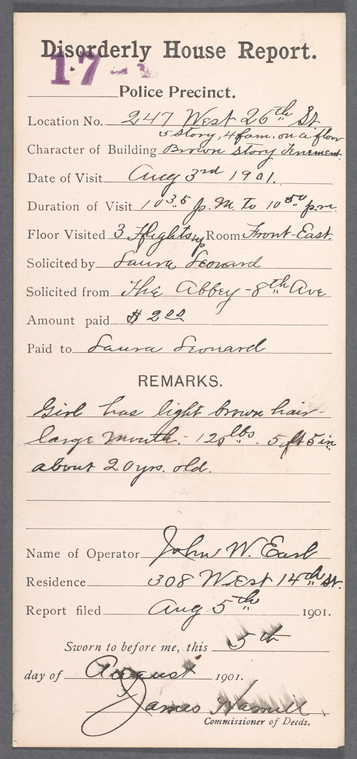 Disorderly House Report.
17
Police Precinct.
Location No. 247 West 26th St.
5 story, 4 fam. on a floor
Character of Building Brown Story Tenement.
Date of Visit Aug 3rd 1901.
Duration of Visit 10 35 p.m. to 10 50 p.m.
Floor Visited 3 flights up Room Front-East
Solicited by Laura Leonard
Solicited from The Abbey - 8th Ave
Amount paid $ 2 00
Paid to Laura Leonard
REMARKS.
Girl has light brown hair -
large mouth. - 120 lbs. 5 ft 5 in
about 20 yrs. old.
Name of Operator John W. Earl
Residence 308 West 14th St.
Report filed Aug 5th 1901.
Sworn to before me, this 5th
day of August 1901.
James Hamill
Commissioner of Deeds.